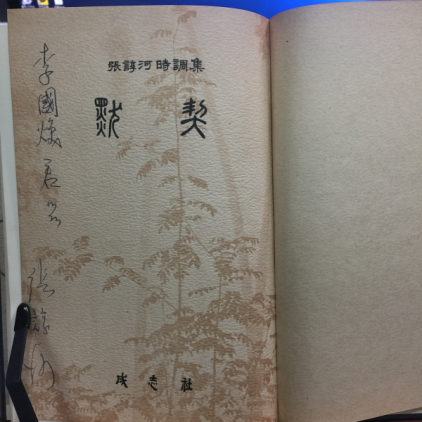 張諄河時調集
默契
李國煥君
張諄河
成志社